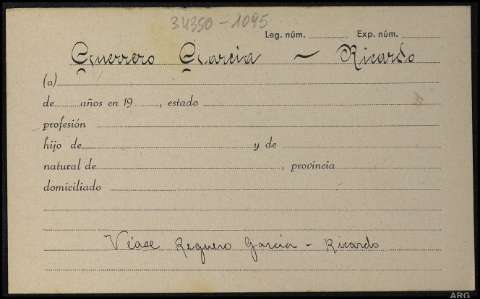 34350-1095
Leg. núm. Exp. núm.
Guerrero Garcia - Ricardo
(a)
de años en 19 , estado
profesión
hijo de y de
natural de , provincia
domiciliado
Véase Reguero Garcia - Ricardo
ARG